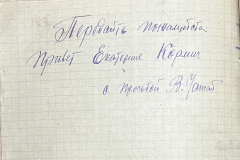 Передать пожалуйста
Привет Екатерине Кермич
с просьбой В.